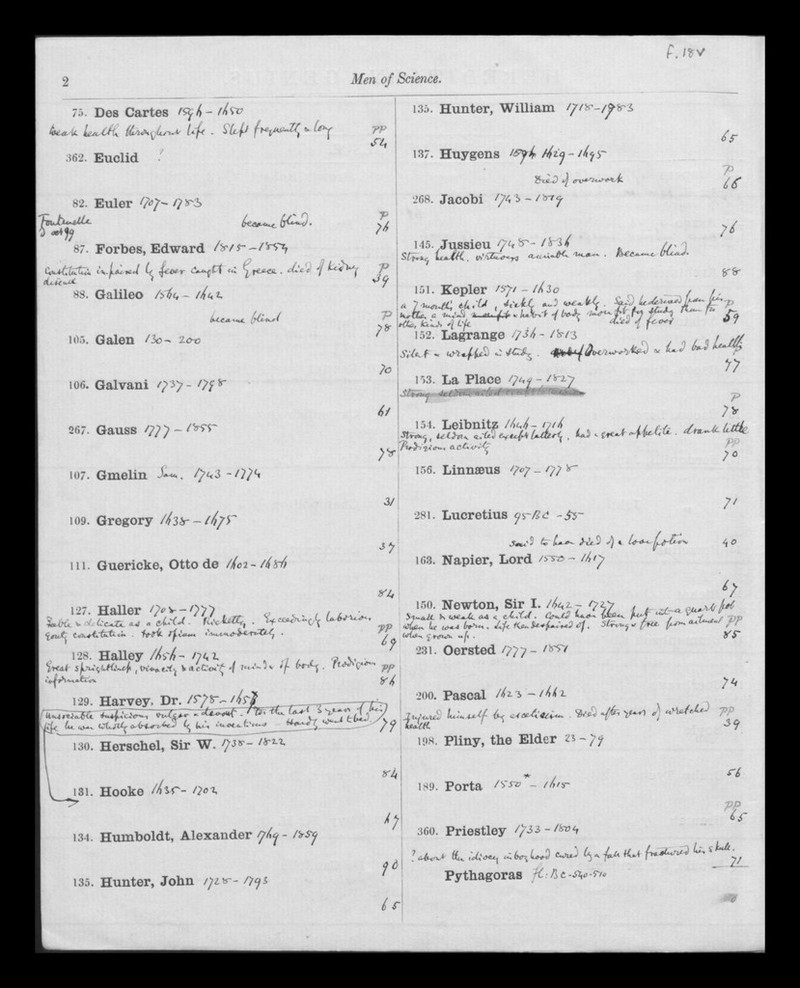 f. 18v
2 Men of Science.
75. Des Cartes 1596 - 1650
Weak health throughout life. Slept frequently & long pp
54
362. Euclid ?
82. Euler 1707 - 1783
became blind. p
76
Fontenelle
87. Forbes, Edward 1815 - 1854
Constitution impaired by fever caught in Greece. died of kidney p
disease 39
88. Galileo 1564 - 1642
became blind p
78
105. Galen 130 - 200
70
106. Galvani 1737 - 1798
61
267. Gauss 1777 - 1855
78
107. Gmelin Sam. 1743 - 1774
31
109. Gregory 1638 - 1675
37
111. Guericke, Otto de 1602 - 1686
84
127. Haller 1708 - 1777
Feeble & delicate as a child. Ricketty. Exceedingly laborious
gouty constitution. took opium immoderately. pp
69
128. Halley 1656 - 1742
Great sprightliness, vivacity & activity of mind & of body. Prodigious pp
information 86
129. Harvey, Dr. 1578 - 1657
Unsociable suspicious vulgar & devout. For the last 3 years of his
life he was wholly absorbed by his inventions - Hardly went to bed
79
130. Herschel, Sir W. 1738 - 1822
84
131. Hooke 1635 - 1702
67
134. Humboldt, Alexander 1769 - 1859
90
135. Hunter, John 1728 - 1793
65
135. Hunter, William 1718 - 1783
65
137. Huygens 1629 - 1695
Died of overwork p
66
268. Jacobi 1743 - 1819
76
145. Jussieu 1748 - 1836
Strong health. virtuous amiable man. Became blind.
88
151. Kepler 1571 - 1630
a 7 month child, sickly and weakly. Said he derived from his p
mother a mind & habit of body more fit for study than for
other kinds of life died of fever 59
152. Lagrange 1736 - 1813
Silent & wrapped in study. Overworked & had bad health
p
77
153. La Place 1749 - 1827
p
78
154. Leibnitz 1646 - 1716
Strong, seldom ailed except latterly, had a great appetite. drank little
Prodigious activity pp
70
156. Linnæus 1707 - 1778
71
281. Lucretius 95 BC - 55
said to have died of a love potion 40
163. Napier, Lord 1550 - 1617
67
150. Newton, Sir I. 1642 - 1727
Small & weak as a child. Could have been put into a quart pot
when he was born. life then despaired of. Strong & free from ailment pp
when grown up. 85
231. Oersted 1777 - 1851
74
200. Pascal 1623 - 1662
Injured himself by asceticism. Died after years of wretched pp
health 39
198. Pliny, the Elder 23 - 79
56
189. Porta 1550* - 1615
pp
65
360. Priestley 1733 - 1804
? about the idiocy in boyhood cured by a fall that fractured his skull.
71
Pythagoras fl: BC - 540 - 510